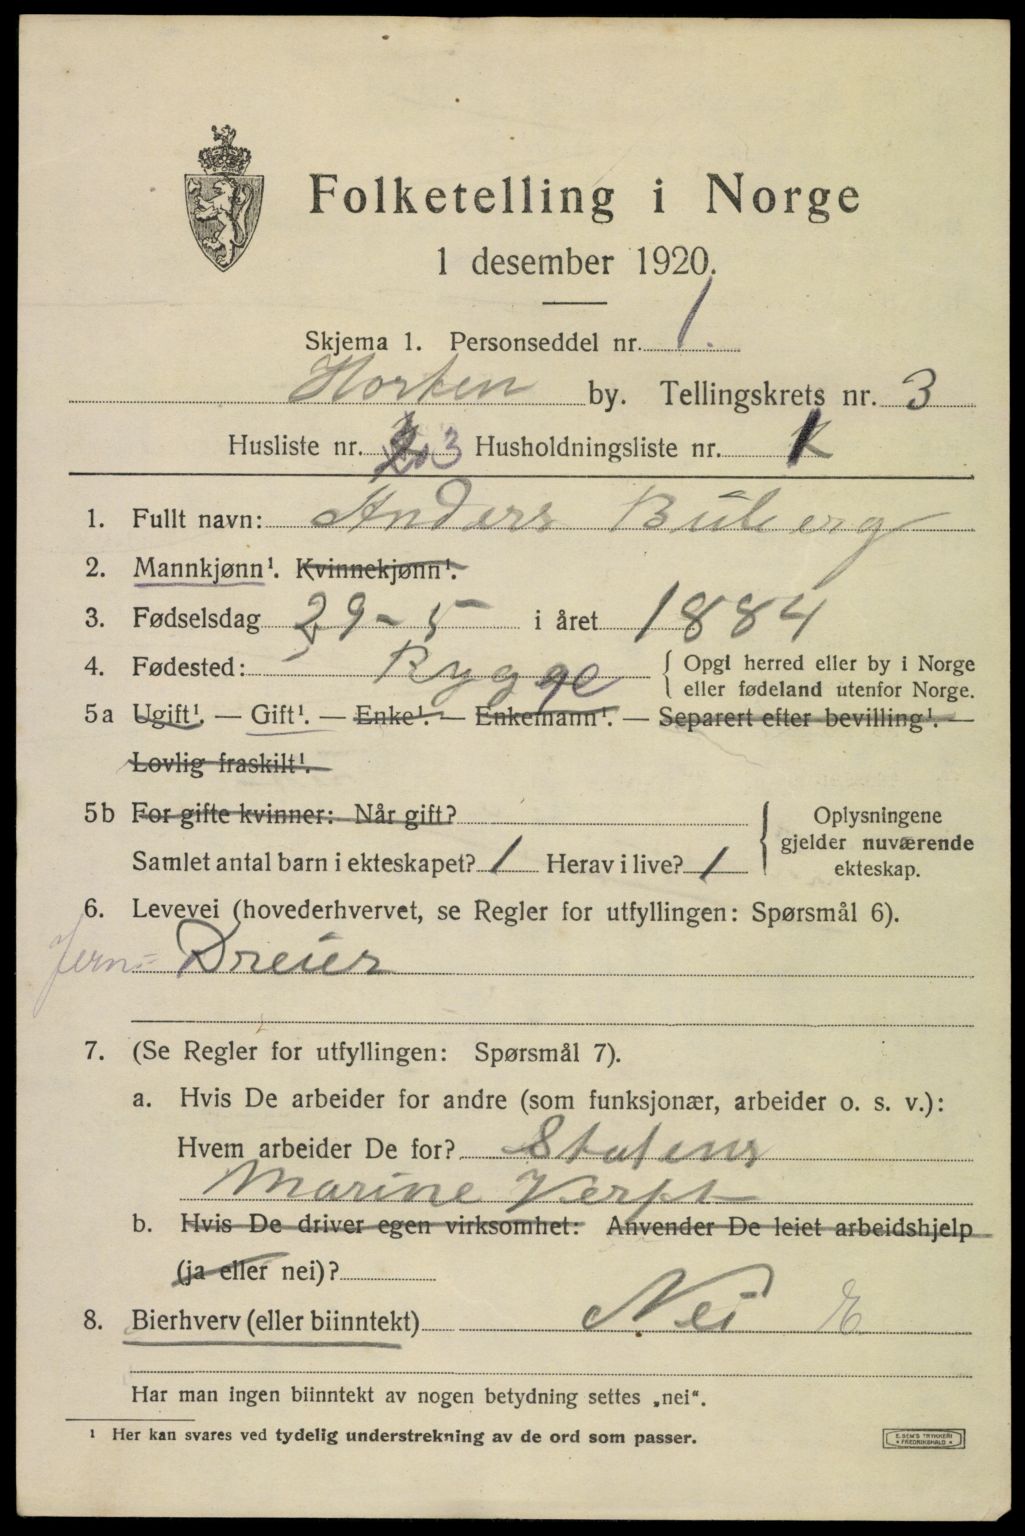 Folketelling i Norge
1 desember 1920.
Skjema 1. Personseddel nr. 1.
Horten by. Tellingskrets nr. 3
Husliste nr. 3 Husholdningsliste nr. 1
1. Fullt navn: Anders
2. Mannkjønn¹. Kvinnekjønn¹.
3. Fødselsdag 29-5 i året 1884
4. Fødested: Rygge { Opgi herred eller by i Norge
eller fødeland utenfor Norge.
5a Ugift¹. — Gift¹. — Enke¹. — Enkemann¹. — Separert efter bevilling¹. —
Lovlig fraskilt¹.
5b For gifte kvinner: Når gift?
Samlet antal barn i ekteskapet? 1 Herav i live? 1
} Oplysningene
gjelder nuværende
ekteskap.
6. Levevei (hovederhvervet, se Regler for utfyllingen: Spørsmål 6).
Jern- Dreier
7. (Se Regler for utfyllingen: Spørsmål 7).
a. Hvis De arbeider for andre (som funksjonær, arbeider o. s. v.):
Hvem arbeider De for? Statens
Marine Verft
b. Hvis De driver egen virksomhet: Anvender De leiet arbeidshjelp
(ja eller nei)?
8. Bierhverv (eller biinntekt) Nei E
Har man ingen biinntekt av nogen betydning settes „nei“.
¹ Her kan svares ved tydelig understrekning av de ord som passer.
E. SEM'S TRYKKERI
FREDRIKSHALD